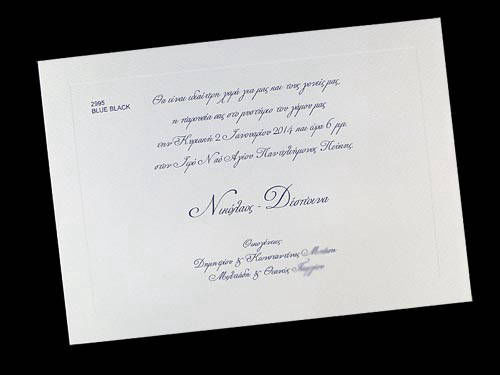 2995
BLUE BLACK
Θα είναι ιδιαίτερη χαρά για μας και τους γονείς μας,
η παρουσία σας στο μυστήριο του γάμου μας
την Κυριακή 2 Ιανουαρίου 2014 και ώρα 6 μμ.
στον Ιερό Ναό Αγίου Παντελεήμονος Πεύκης.
Νικόλαος - Δέσποινα
Οικογένειες
Δημητρίου & Κωνσταντίνας
Μιλτιάδη & Φωτεινής